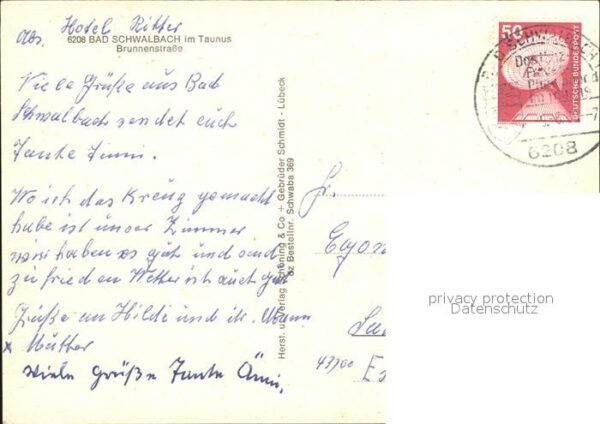 Abs. Hotel Ritter
6208 BAD SCHWALBACH im Taunus
Brunnenstraße
Viele Grüße aus Bad
Schwalbach sendet euch
Tante Änni.
Wo ich das Kreuz gemacht
habe ist unser Zimmer
wir haben es gut und sind
zufrieden Wetter ist auch gut
Grüße an Hilde und ihr. Mann
x Mutter
viele Grüße Tante Änni.
Herst. u. Verlag Schöning & Co + Gebrüder Schmidt - Lübeck
Bestellnr. Schwaba 369
50
DEUTSCHE BUNDESPOST
6208
Fr.
Egon
43700 Es
privacy protection
Datenschutz